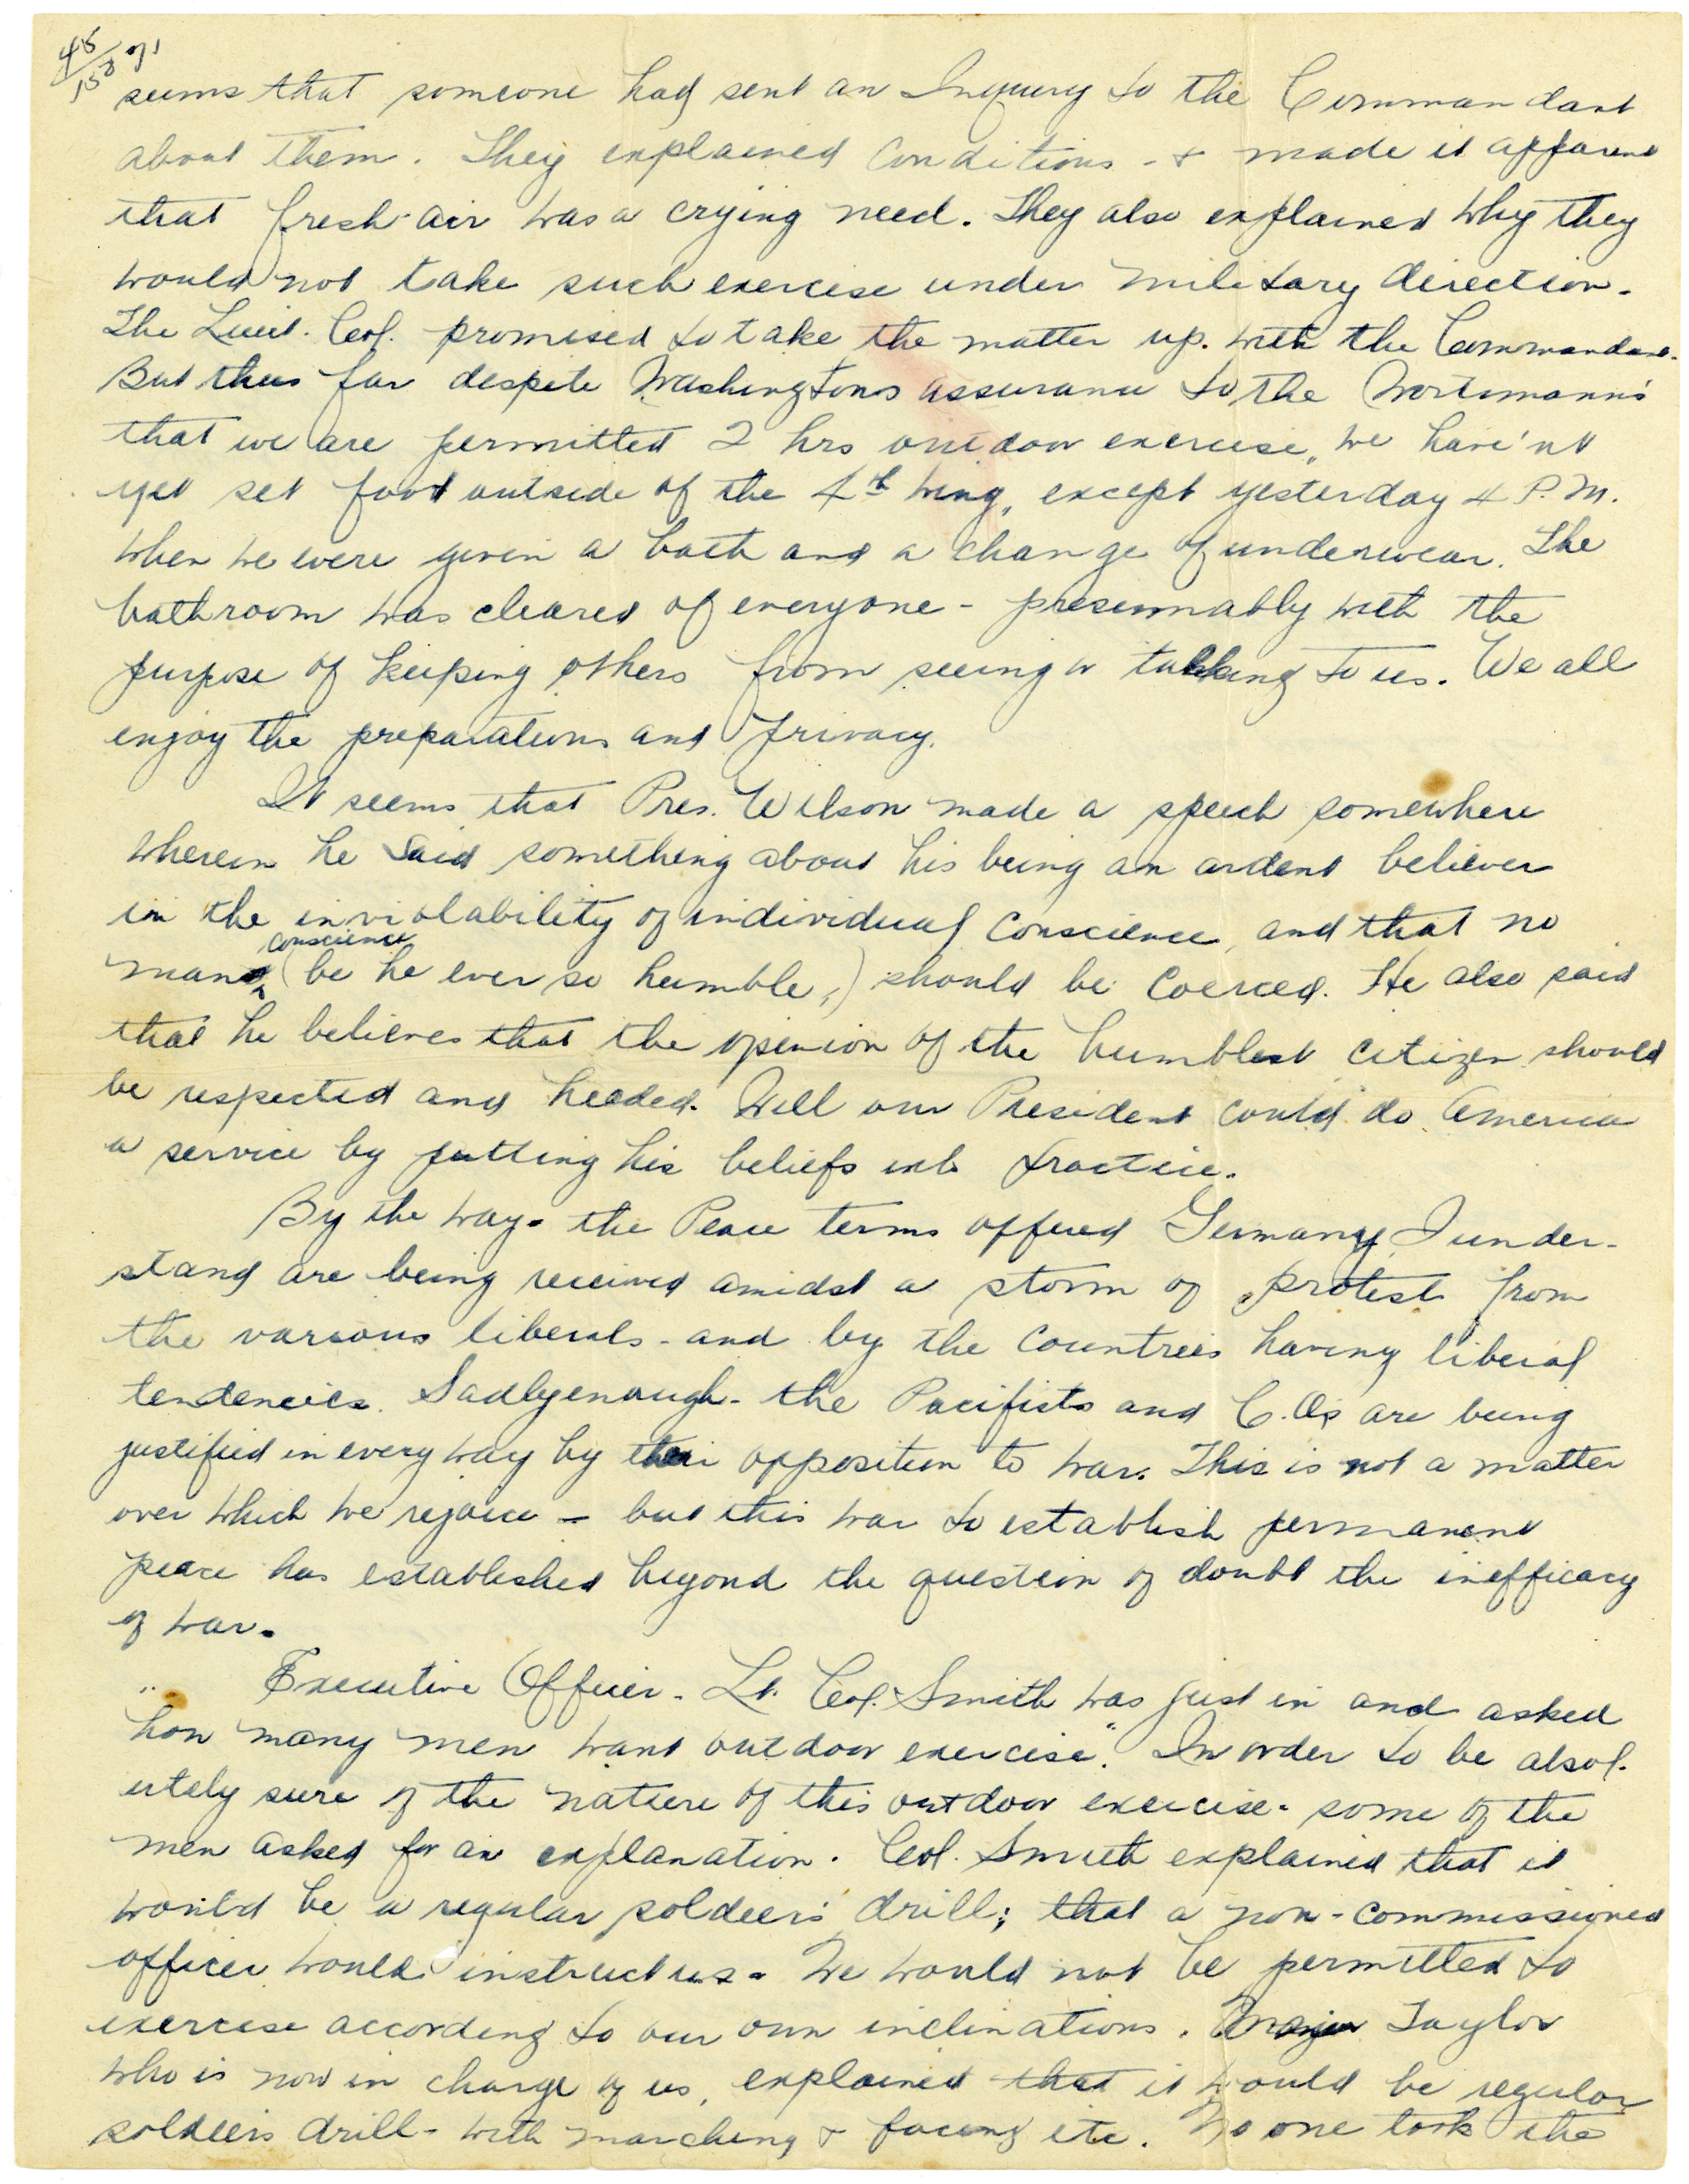 seems that someone had sent an Inquiry to the Commandant
about them. They explained conditions - & made it apparent
that fresh air was a crying need. They also explained why they
would not take such exercise under military direction.
The Lieut. Col. promised to take the matter up. with the Commandant.
But thus far despite Washingtons assurance to the Wortsmann's
that we are permitted 2 hrs outdoor exercise, we have'nt
yet set foot outside of the 4th wing, except yesterday 4 P.M.
when we were given a bath and a change of underwear. The
bathroom was cleared of everyone - presumably with the
purpose of keeping others from seeing or talking to us. We all
enjoy the preparations and privacy.
It seems that Pres. Wilson made a speech somewhere
wherein he said something about his being an ardent believer
in the inviolability of individual conscience, and that no
mans conscience (be he ever so humble,) should be coerced. He also said
that he believes that the opinion of the humblest citizen should
be respected and heeded. Well our President could do America
a service by putting his beliefs into practice.
By the way - the Peace terms offered Germany I under-
stand are being received amidst a storm of protest from
the various liberals - and by the countries having liberal
tendencies. Sadly enough - the Pacifists and C.Os are being
justified in every way by their opposition to war. This is not a matter
over which we rejoice - but this war to establish permanent
peace has established beyond the question of doubt the inefficacy
of war.
Executive Officer - Lt. Col. Smith was just in and asked
"how many men want outdoor exercise". In order to be absol-
utely sure of the nature of this outdoor exercise - some of the
men asked for an explanation. Col. Smith explained that it
would be a regular soldier's drill; that a non-commissioned
officer would instruct us - We would not be permitted to
exercise according to our own inclinations. Major Taylor
who is now in charge of us, explained that it would be regular
soldiers drill - with marching & facing etc. No one took the